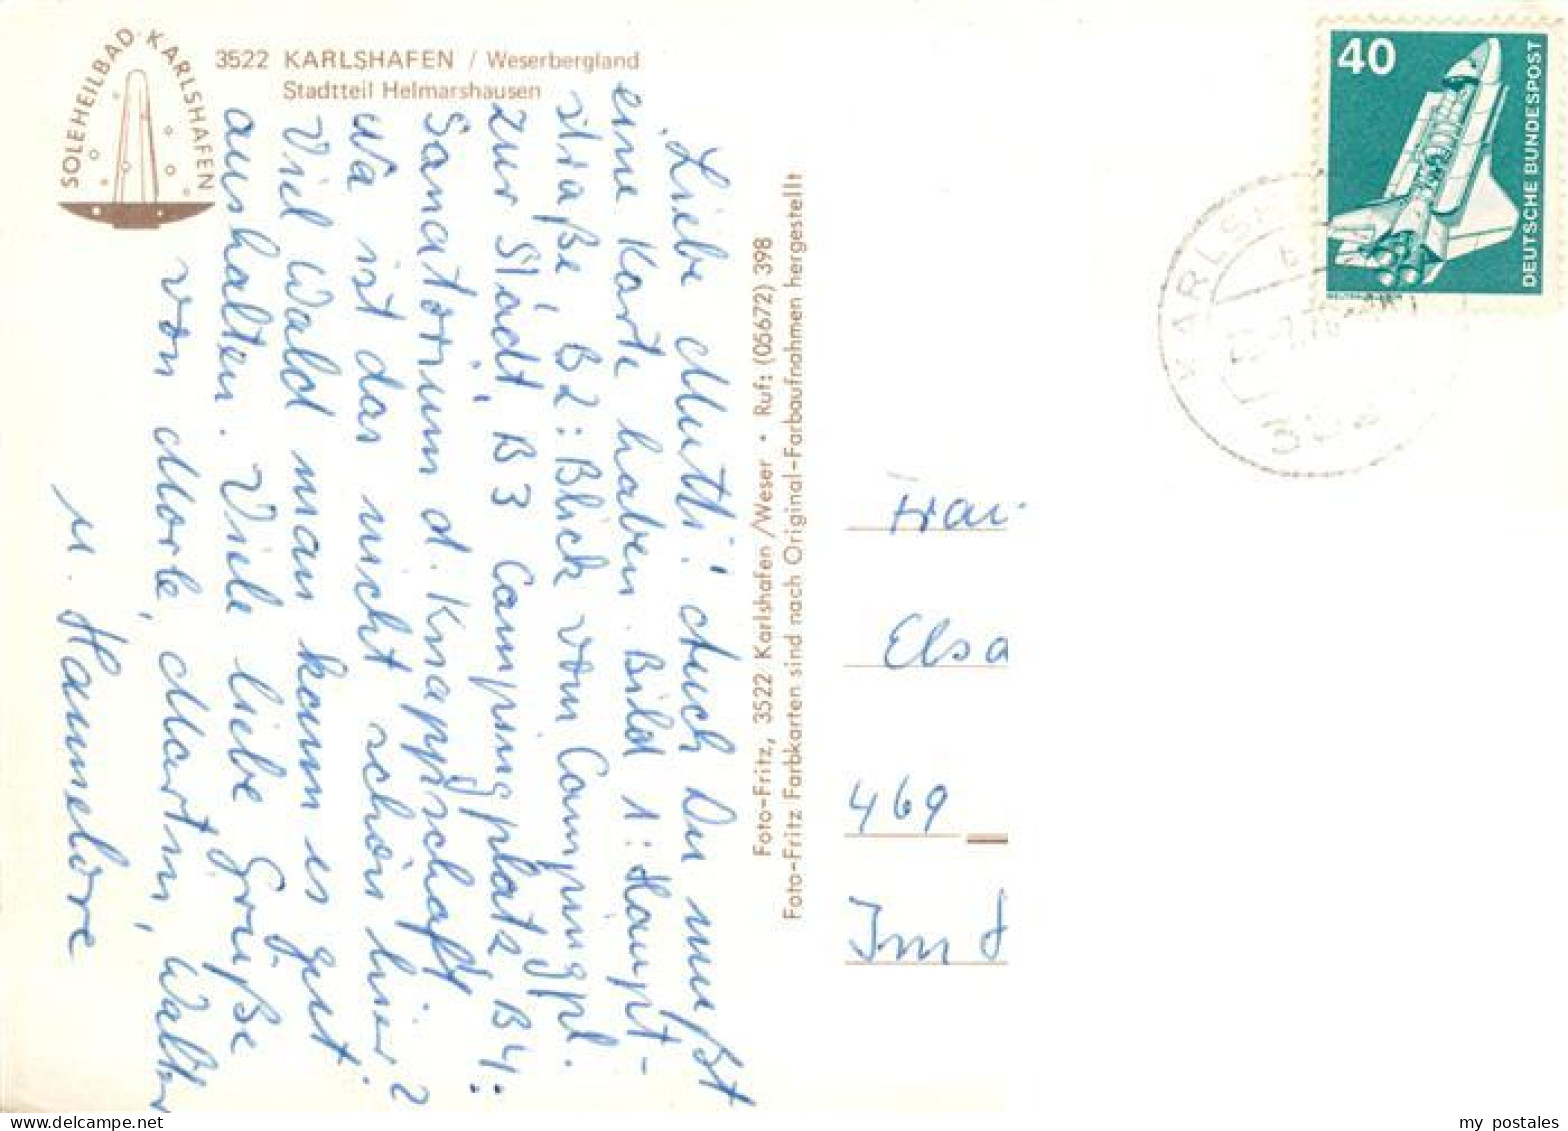 SOLEHEILBAD KARLSHAFEN
3522 KARLSHAFEN / Weserbergland
Stadtteil Helmarshausen
Liebe Mutti! Auch Du mußt
eine Karte haben. Bild 1: Haupt-
straße B2: Blick vom Campingpl.
zur Stadt, B3 Campingplatz, B4:
Sanatorium d. Knappschaft
Na ist das nicht schön hier?
Viel Wald man kann es gut
aushalten. Viele liebe Grüße
von Morle, Martin, Walter
u. Hannelore
Foto-Fritz, 3522 Karlshafen/Weser • Ruf: (05672) 398
Foto-Fritz Farbkarten sind nach Original-Farbaufnahmen hergestellt
40
DEUTSCHE BUNDESPOST
KARLSH
Elsa
469
Im
my postales